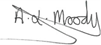 A.d. Moody